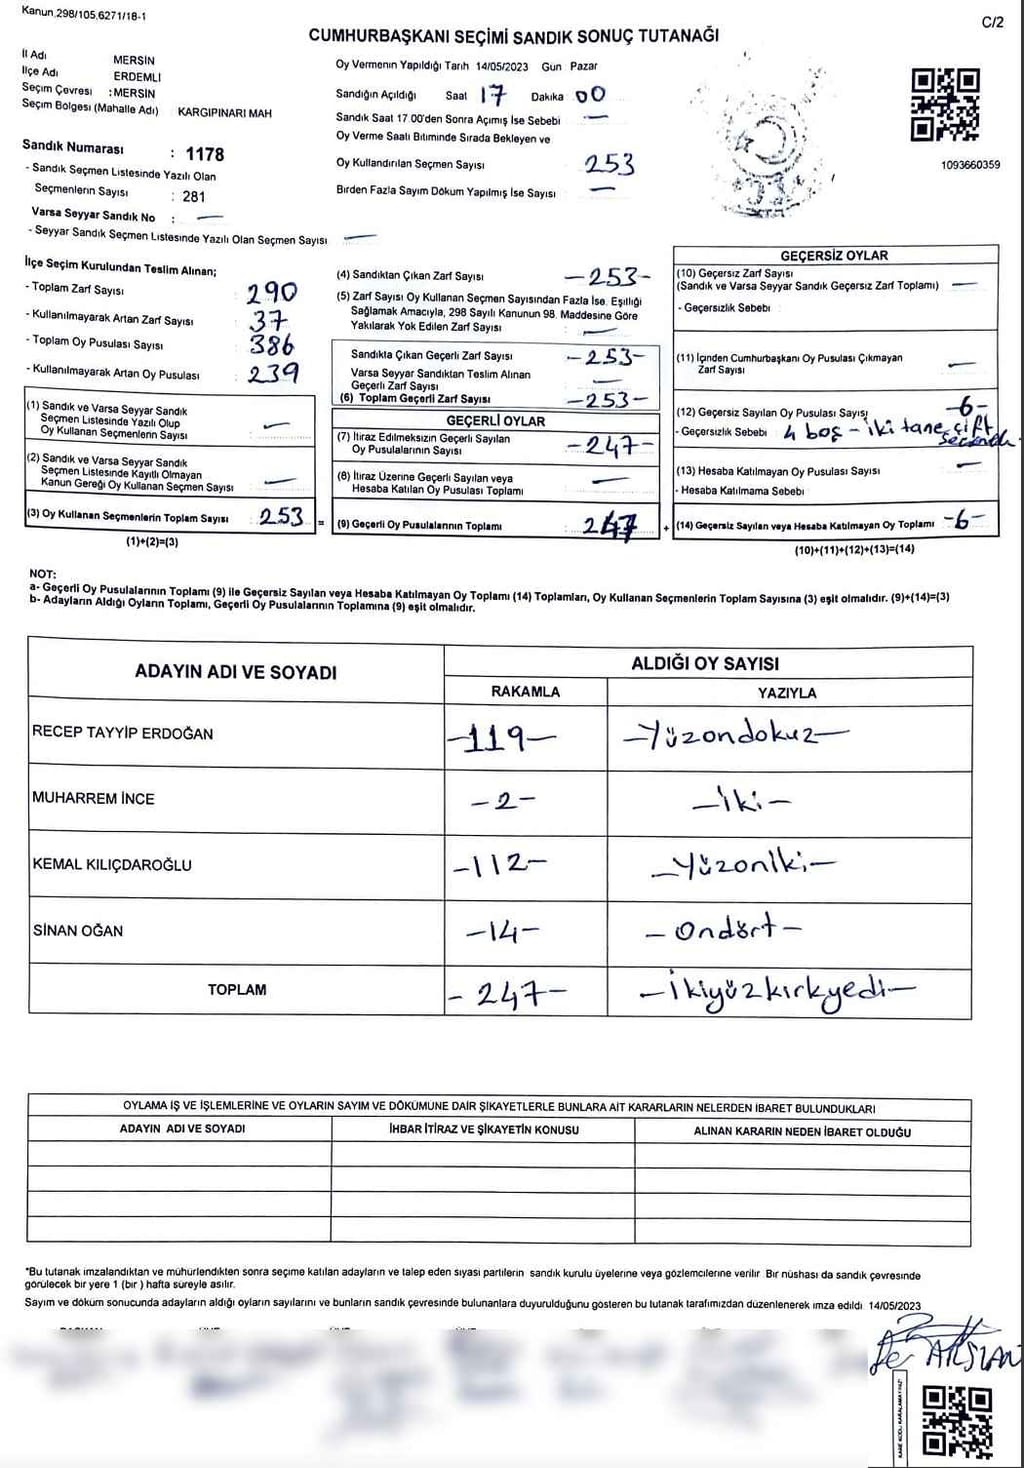 Kanun.298/105,6271/18-1
C/2
CUMHURBAŞKANI SEÇİMİ SANDIK SONUÇ TUTANAĞI
İl Adı MERSİN
İlçe Adı ERDEMLİ
Seçim Çevresi : MERSİN
Seçim Bölgesi (Mahalle Adı) KARGIPINARI MAH
Sandık Numarası : 1178
- Sandık Seçmen Listesinde Yazılı Olan
Seçmenlerin Sayısı : 281
Varsa Seyyar Sandık No : —
- Seyyar Sandık Seçmen Listesinde Yazılı Olan Seçmen Sayısı —
Oy Vermenin Yapıldığı Tarih 14/05/2023 Gün Pazar
Sandığın Açıldığı Saat 17 Dakika 00
Sandık Saat 17.00'den Sonra Açımış İse Sebebi —
Oy Verme Saati Bitiminde Sırada Bekleyen ve
Oy Kullandırılan Seçmen Sayısı 253
Birden Fazla Sayım Döküm Yapılmış İse Sayısı —
1093660359
İlçe Seçim Kurulundan Teslim Alınan;
- Toplam Zarf Sayısı 290
- Kullanılmayarak Artan Zarf Sayısı 37
- Toplam Oy Pusulası Sayısı : 386
- Kullanılmayarak Artan Oy Pusulası : 239
(1) Sandık ve Varsa Seyyar Sandık
Seçmen Listesinde Yazılı Olup
Oy Kullanan Seçmenlerin Sayısı —
(2) Sandık ve Varsa Seyyar Sandık
Seçmen Listesinde Kayıtlı Olmayan
Kanun Gereği Oy Kullanan Seçmen Sayısı —
(3) Oy Kullanan Seçmenlerin Toplam Sayısı 253 =
(1)+(2)=(3)
(4) Sandıktan Çıkan Zarf Sayısı -253-
(5) Zarf Sayısı Oy Kullanan Seçmen Sayısından Fazla İse, Eşitliği
Sağlamak Amacıyla, 298 Sayılı Kanunun 98. Maddesine Göre
Yakılarak Yok Edilen Zarf Sayısı : —
Sandıkta Çıkan Geçerli Zarf Sayısı -253-
Varsa Seyyar Sandıktan Teslim Alınan
Geçerli Zarf Sayısı —
(6) Toplam Geçerli Zarf Sayısı -253-
GEÇERLİ OYLAR
(7) İtiraz Edilmeksizin Geçerli Sayılan
Oy Pusulalarının Sayısı -247-
(8) İtiraz Üzerine Geçerli Sayılan veya
Hesaba Katılan Oy Pusulası Toplamı —
(9) Geçerli Oy Pusulalarının Toplamı 247 +
GEÇERSİZ OYLAR
(10) Geçersiz Zarf Sayısı
(Sandık ve Varsa Seyyar Sandık Geçersiz Zarf Toplamı) —
- Geçersizlik Sebebi
(11) İçinden Cumhurbaşkanı Oy Pusulası Çıkmayan
Zarf Sayısı —
(12) Geçersiz Sayılan Oy Pusulası Sayısı -6-
- Geçersizlik Sebebi 4 boş - iki tane çift
(13) Hesaba Katılmayan Oy Pusulası Sayısı —
- Hesaba Katılmama Sebebi
(14) Geçersiz Sayılan veya Hesaba Katılmayan Oy Toplamı -6-
(10)+(11)+(12)+(13)=(14)
NOT:
a- Geçerli Oy Pusulalarının Toplamı (9) ile Geçersiz Sayılan veya Hesaba Katılmayan Oy Toplamı (14) Toplamları, Oy Kullanan Seçmenlerin Toplam Sayısına (3) eşit olmalıdır. (9)+(14)=(3)
b- Adayların Aldığı Oyların Toplamı, Geçerli Oy Pusulalarının Toplamına (9) eşit olmalıdır.
ADAYIN ADI VE SOYADI ALDIĞI OY SAYISI
RAKAMLA YAZIYLA
RECEP TAYYİP ERDOĞAN -119- -Yüzondokuz-
MUHARREM İNCE -2- -İki-
KEMAL KILIÇDAROĞLU -112- -Yüzoniki-
SİNAN OĞAN -14- -Ondört-
TOPLAM -247- -İkiyüzkırkyedi-
OYLAMA İŞ VE İŞLEMLERİNE VE OYLARIN SAYIM VE DÖKÜMÜNE DAİR ŞİKAYETLERLE BUNLARA AİT KARARLARIN NELERDEN İBARET BULUNDUKLARI
ADAYIN ADI VE SOYADI İHBAR İTİRAZ VE ŞİKAYETİN KONUSU ALINAN KARARIN NEDEN İBARET OLDUĞU
*Bu tutanak imzalandıktan ve mühürlendikten sonra seçime katılan adayların ve talep eden siyasi partilerin sandık kurulu üyelerine veya gözlemcilerine verilir Bir nüshası da sandık çevresinde
görülecek bir yere 1 (bir ) hafta süreyle asılır.
Sayım ve döküm sonucunda adayların aldığı oyların sayılarını ve bunların sandık çevresinde bulunanlara duyurulduğunu gösteren bu tutanak tarafımızdan düzenlenerek imza edildi 14/05/2023
ARSLAN